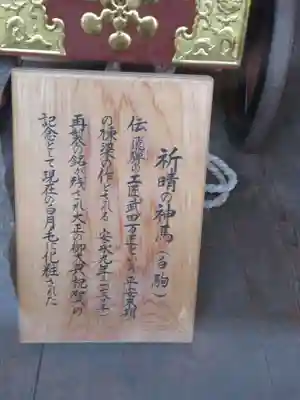 祈晴の神馬（白駒）
伝 飛騨の工匠武田万匠という 平安東別
の棟梁の作とされる 安永九年（一七八〇）
再製の銘が残され大正の御大典祝賀の
記念として現在の白月毛に化粧された